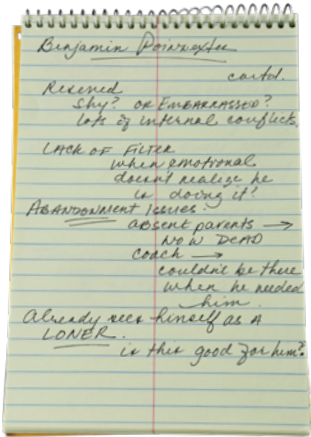 Benjamin Poindexter
contd.
Reserved
shy? OR EMBARRASSED?
lots of internal conflicts.
LACK OF FILTER
when emotional
doesn't realize he
is doing it?
ABANDONMENT ISSUES:
absent parents →
NOW DEAD
coach →
couldn't be there
when he needed
him.
Already sees himself as A
LONER.
is this good for him?